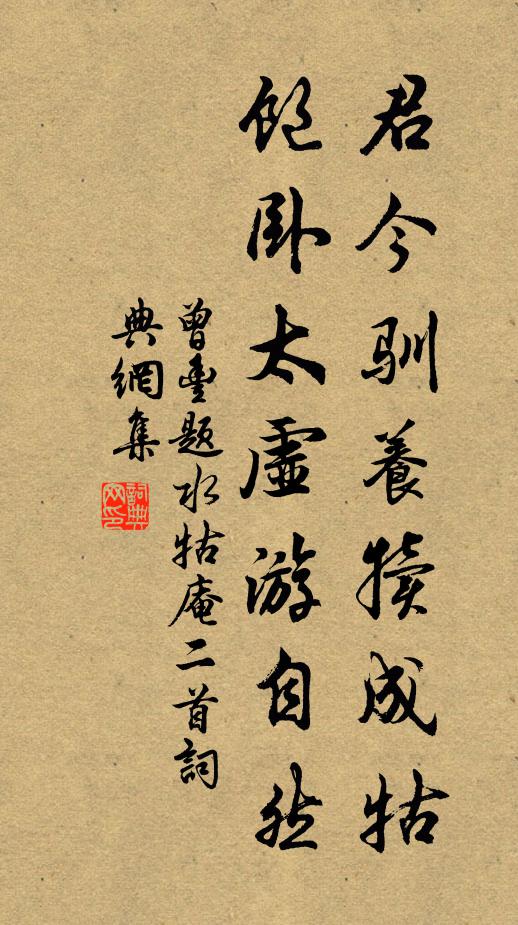 君今馴養犢成牯
飽臥太虛游自然
曾豊題水牯庵二首詞
典網集
詞典
网印